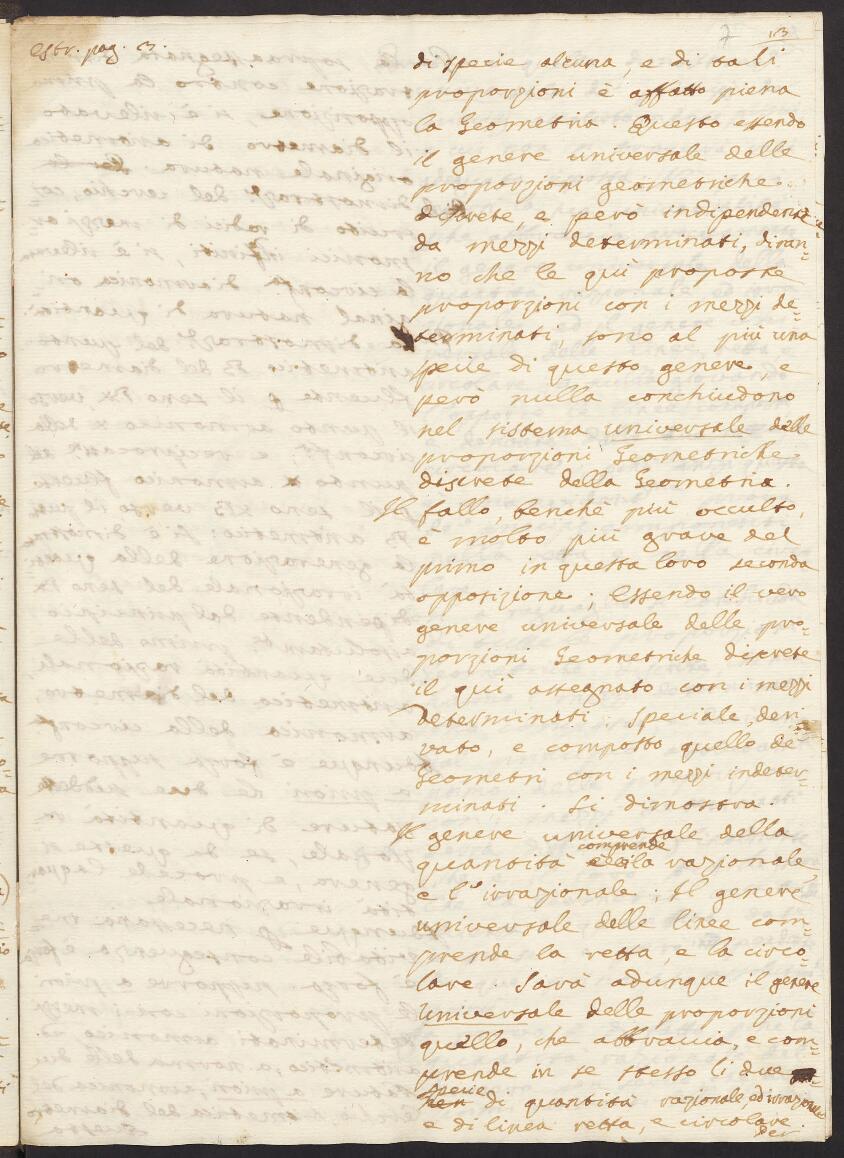 estr. pag. 3.
7 13
di specie alcuna, e di tali
proporzioni è affatto piena
la Geometria. Questo essendo
il genere universale delle
proporzioni geometriche
discrete, e però indipendente
da mezzi determinati, diran=
no che le quì proposte
proporzioni con i mezzi de=
terminati, sono al più una
specie di questo genere, e
però nulla conchiudono
nel sistema universale delle
proporzioni Geometriche
discrete della Geometria.
Il fallo, benchè più occulto,
è molto più grave del
primo in questa loro seconda
opposizione; Essendo il vero
genere universale delle pro=
porzioni Geometriche discrete
il quì assegnato con i mezzi
determinati: speciale, deri=
vato, e composto quello de
Geometri con i mezzi indeter=
minati. Si dimostra.
Il genere universale della
comprende
quantità la razionale,
e l'irrazionale; Il genere
universale delle linee com=
prende la retta, e la circo=
lare. Sarà adunque il genere
universale delle proporzioni
quello, che abbraccia, e com=
prende in se stesso li due
specie
di quantità razionale ed irrazionale
e di linea retta, e circolare.
Per